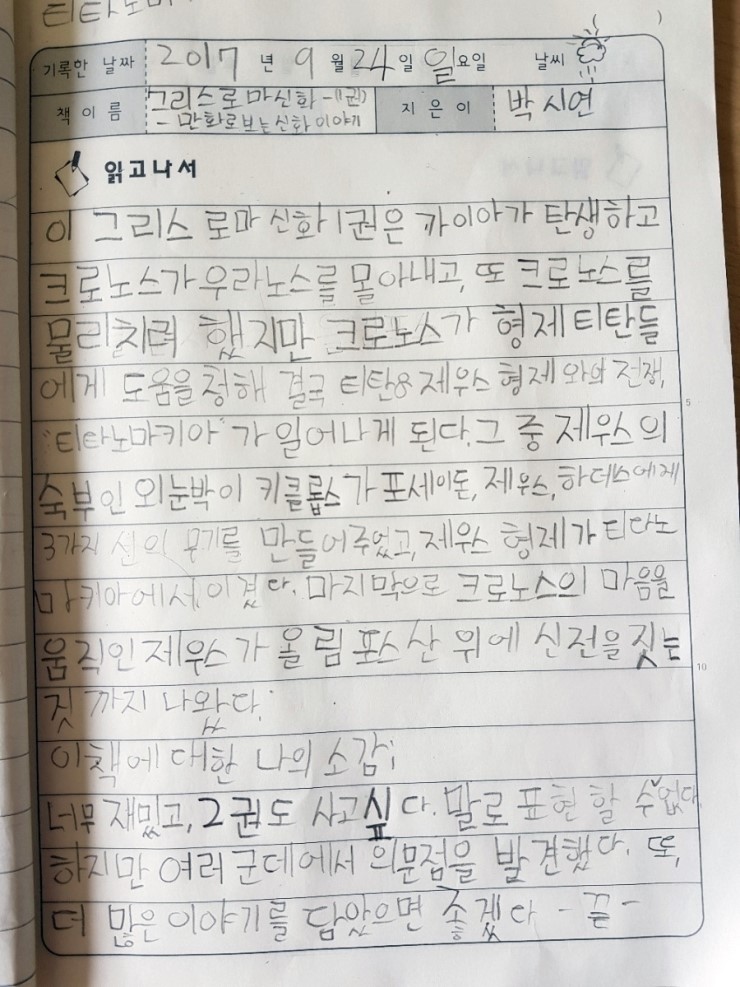 티타노마
기록한 날짜 2017 년 9 월 24 일 일요일 날씨
책 이름 그리스로마신화-(1권) -만화로보는신화이야기 지은이 박시연
읽고나서
이 그리스 로마 신화 1권은 가이아가 탄생하고
크로노스가 우라노스를 몰아내고, 또 크로노스를
물리치려 했지만 크로노스가 형제 티탄들
에게 도움을 청해 결국 티탄&제우스 형제와의 전쟁,
"티타노마키아"가 일어나게 된다. 그 중 제우스의
숙부인 외눈박이 키클롭스가 포세이돈, 제우스, 하데스에게
3가지 신의 무기를 만들어주었고, 제우스 형제가 티타노
마키아에서 이겼다. 마지막으로 크로노스의 마음을
움직인 제우스가 올림포스 산 위에 신전을 짓는
것 까지 나왔다.
이 책에 대한 나의 소감;
너무 재밌고, 2권도 사고싶다. 말로 표현 할 수없다
하지만 여러 군데에서 의문점을 발견했다. 또,
더 많은 이야기를 담았으면 좋겠다 -끝-
5
10